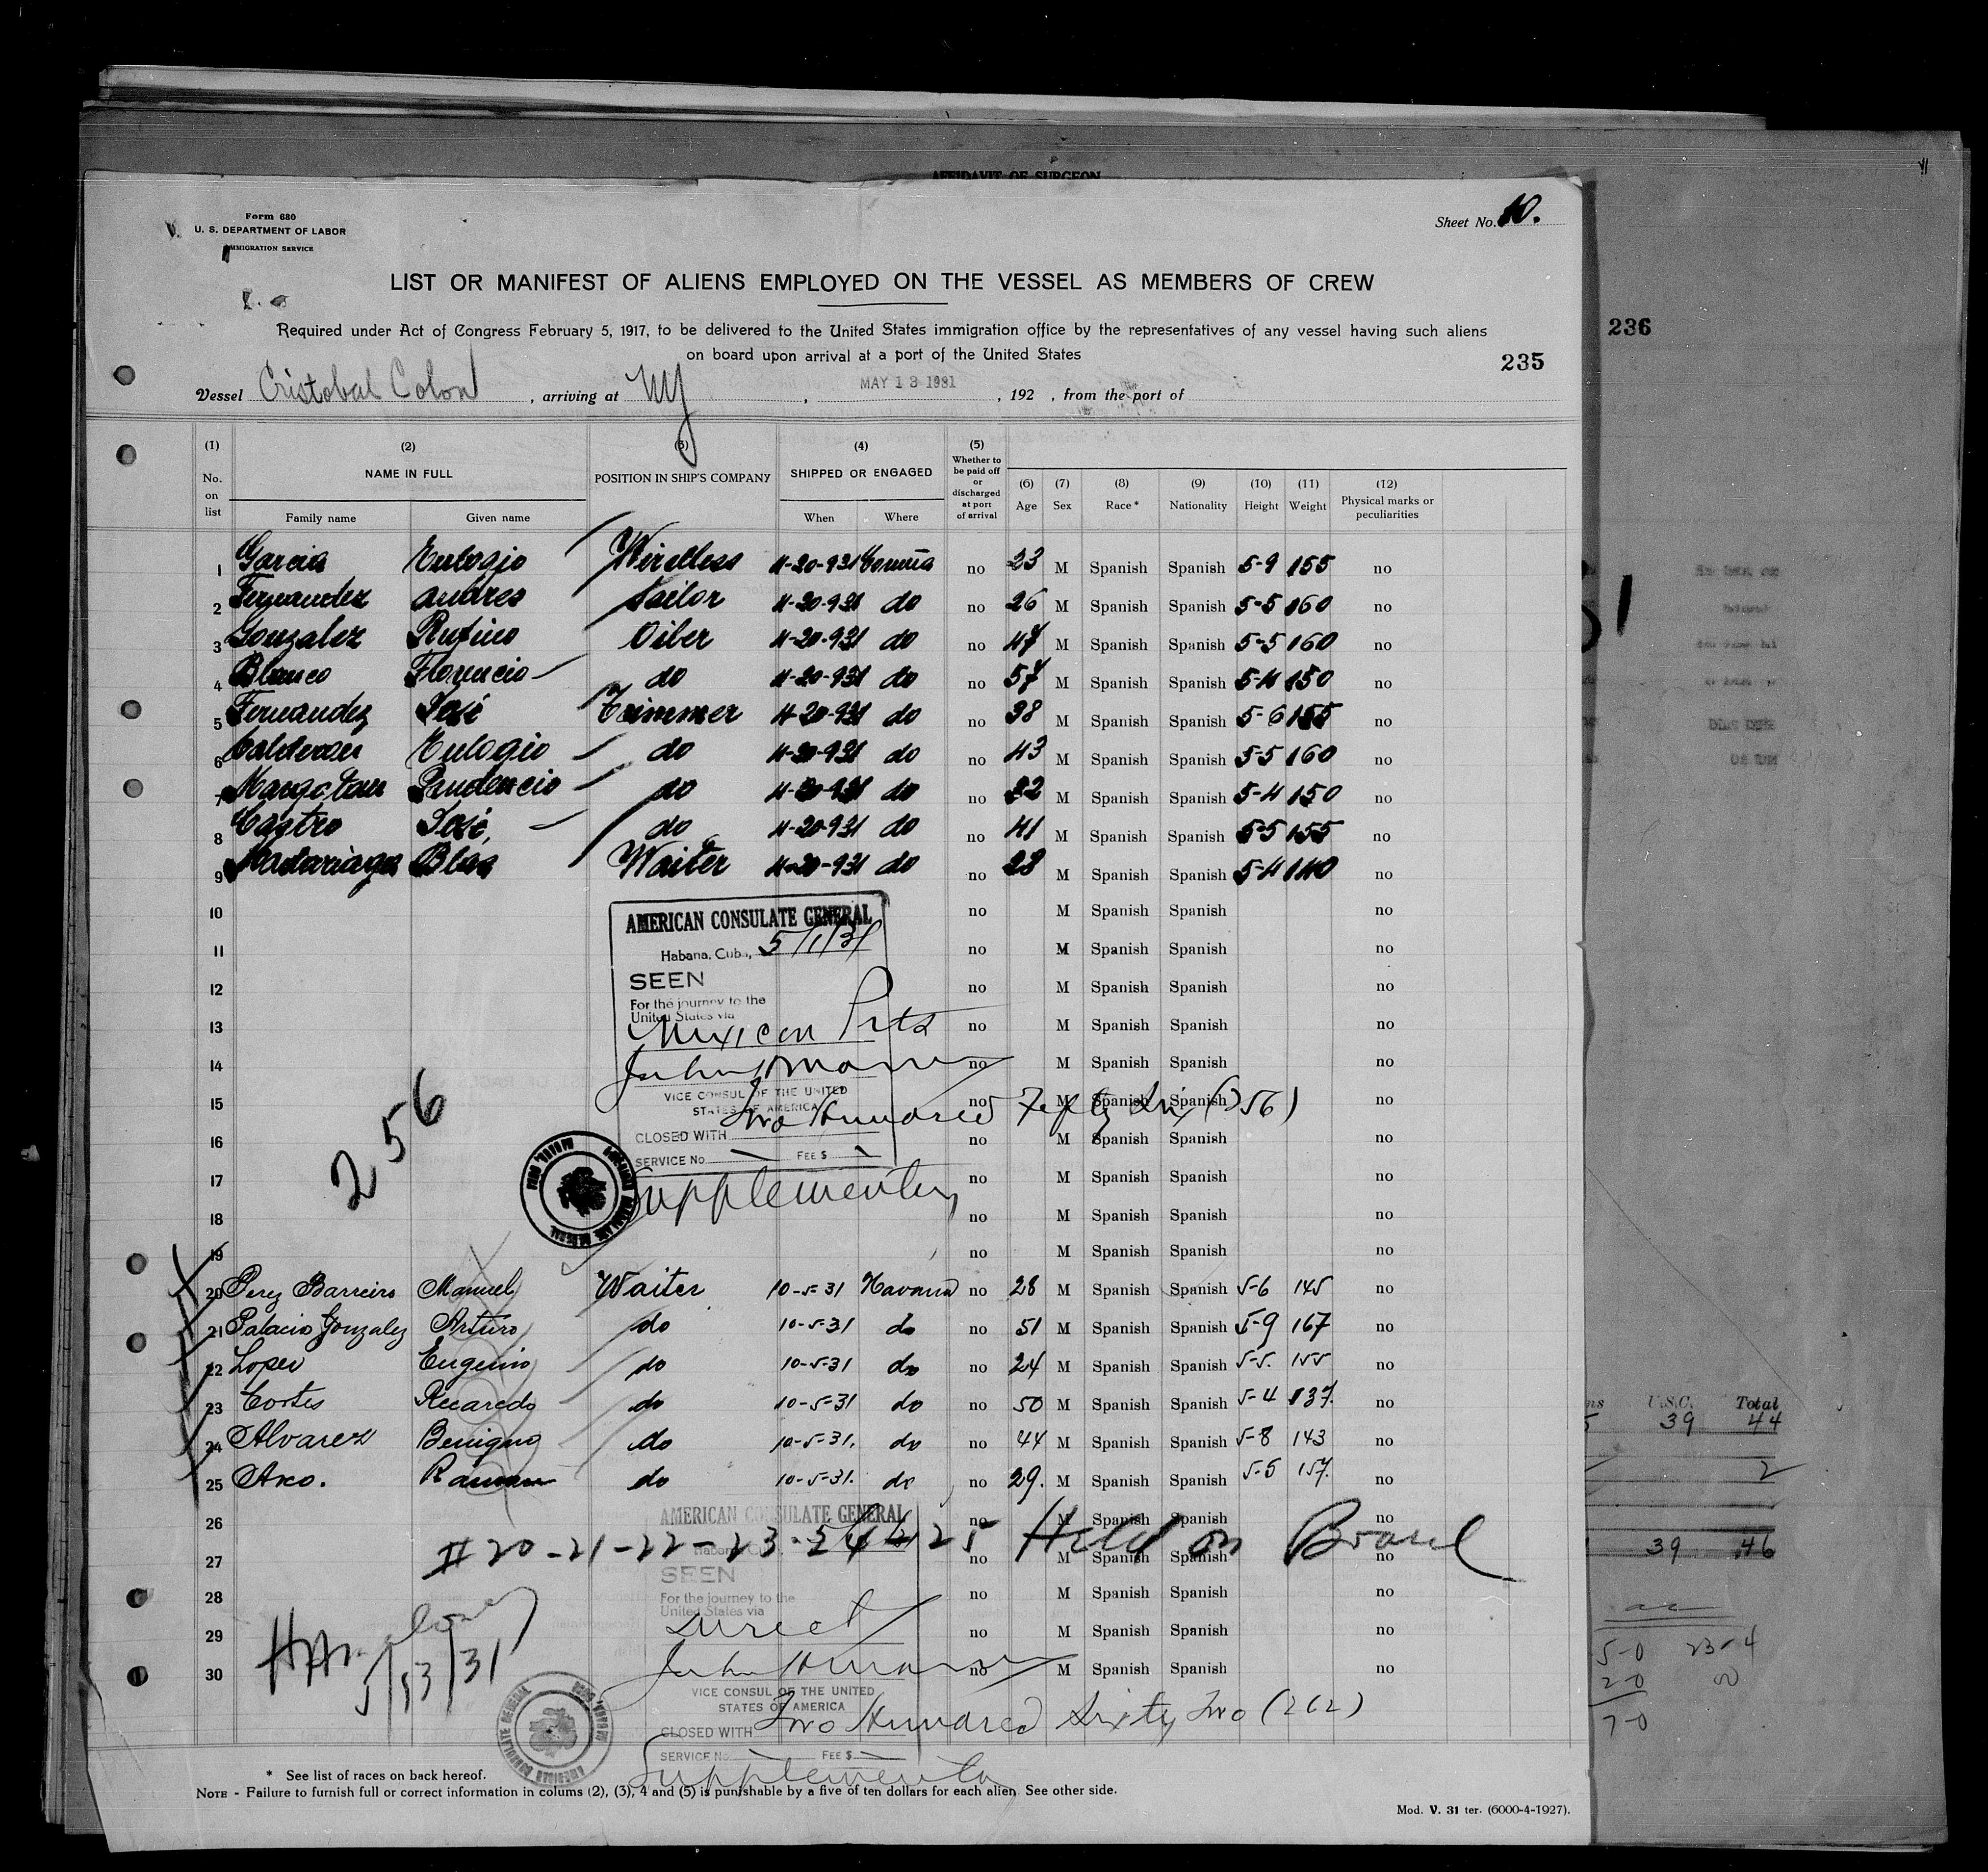 AFFIDAVIT OF SURGEON
Form 680
U. S. DEPARTMENT OF LABOR
IMMIGRATION SERVICE
Sheet No. 10.
LIST OR MANIFEST OF ALIENS EMPLOYED ON THE VESSEL AS MEMBERS OF CREW
Required under Act of Congress February 5, 1917, to be delivered to the United States immigration office by the representatives of any vessel having such aliens
on board upon arrival at a port of the United States
235
236
Vessel Cristobal Colon, arriving at NY, MAY 13 1931, 192 , from the port of
(1) (2) (3) (4) (5) (6) (7) (8) (9) (10) (11) (12)
No. on list NAME IN FULL Family name Given name POSITION IN SHIP'S COMPANY SHIPPED OR ENGAGED When Where Whether to be paid off or discharged at port of arrival Age Sex Race* Nationality Height Weight Physical marks or peculiarities
1 Garcia Eulogio Wireless 4-20-931 Coruña no 23 M Spanish Spanish 5-9 155 no
2 Fernandez Andres Sailor 4-20-931 do no 26 M Spanish Spanish 5-5 160 no
3 Gonzalez Rufino Oiler 4-20-931 do no 47 M Spanish Spanish 5-5 160 no
4 Blanco Florencio do 4-20-931 do no 57 M Spanish Spanish 5-4 150 no
5 Fernandez José Trimmer 4-20-931 do no 38 M Spanish Spanish 5-6 155 no
6 Eulogio do 4-20-931 do no 43 M Spanish Spanish 5-5 160 no
7 Prudencio do 4-20-931 do no 32 M Spanish Spanish 5-4 150 no
8 Castro José do 4-20-931 do no 41 M Spanish Spanish 5-5 155 no
9 Madariaga Blas Waiter 4-20-931 do no 28 M Spanish Spanish 5-4 140 no
10 no M Spanish Spanish no
11 no M Spanish Spanish no
12 no M Spanish Spanish no
13 no M Spanish Spanish no
14 no M Spanish Spanish no
15 no M Spanish Spanish no
16 no M Spanish Spanish no
17 no M Spanish Spanish no
18 no M Spanish Spanish no
19 no M Spanish Spanish no
AMERICAN CONSULATE GENERAL
Habana, Cuba, 5/1/31
SEEN
For the journey to the
United States via
Mexican Pts
VICE CONSUL OF THE UNITED
STATES OF AMERICA
Two Hundred Fifty Six (256)
CLOSED WITH
SERVICE No. FEE $
Supplementary
256
20 Perez Barreiro Manuel Waiter 10-5-31 Havana no 28 M Spanish Spanish 5-6 145 no
21 Palacio Gonzalez Arturo do 10-5-31 do no 51 M Spanish Spanish 5-9 167 no
22 Lopez Eugenio do 10-5-31 do no 24 M Spanish Spanish 5-5. 155 no
23 Cortes Recaredo do 10-5-31 do no 50 M Spanish Spanish 5-4 137. no
24 Alvarez Benigno do 10-5-31. do no 44 M Spanish Spanish 5-8 143 no
25 Axo. Ramon do 10-5-31. do no 29. M Spanish Spanish 5-5 157. no
26 no M Spanish Spanish no
27 no M Spanish Spanish no
28 no M Spanish Spanish no
29 no M Spanish Spanish no
30 no M Spanish Spanish no
# 20-21-22-23-24 25 Held on Board
AMERICAN CONSULATE GENERAL
SEEN
For the journey to the
United States via
Direct
VICE CONSUL OF THE UNITED
STATES OF AMERICA
CLOSED WITH Two Hundred Sixty Two (262)
SERVICE No. FEE $
Supplementa
5/13/31
* See list of races on back hereof.
NOTE - Failure to furnish full or correct information in colums (2), (3), 4 and (5) is punishable by a five of ten dollars for each alien. See other side.
Mod. V. 31 ter. (6000-4-1927).
U.S.C. Total
39 44
2
39 46
5-0 23-4
2-0
7-0